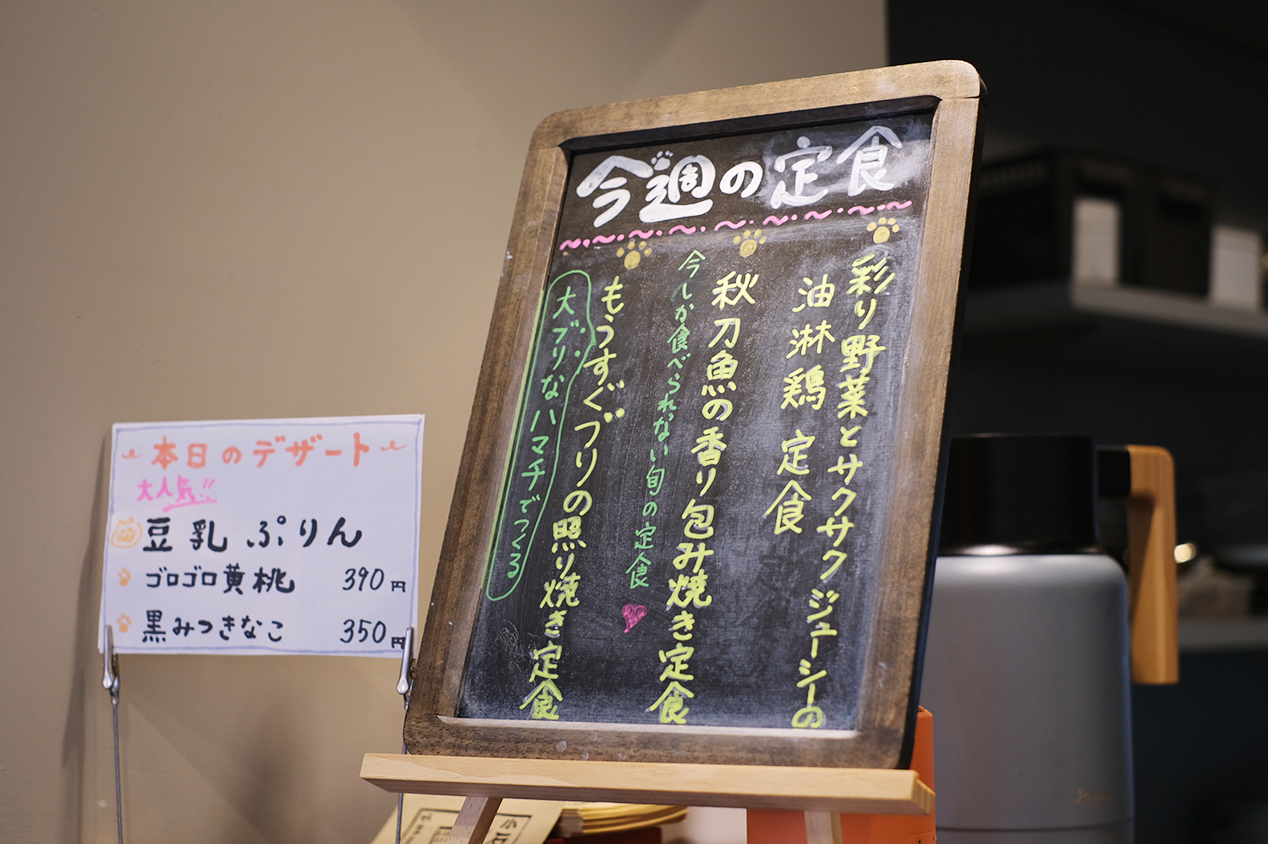 今週の定食
彩り野菜とサクサクジューシーの
油淋鶏 定食
秋刀魚の香り包み焼き定食
今しか食べられない旬の定食
もうすぐブリの照り焼き定食
大ブリなハマチでつくる
本日のデザート
大人気!!
豆乳ぷりん
ゴロゴロ黄桃 390円
黒みつきなこ 350円